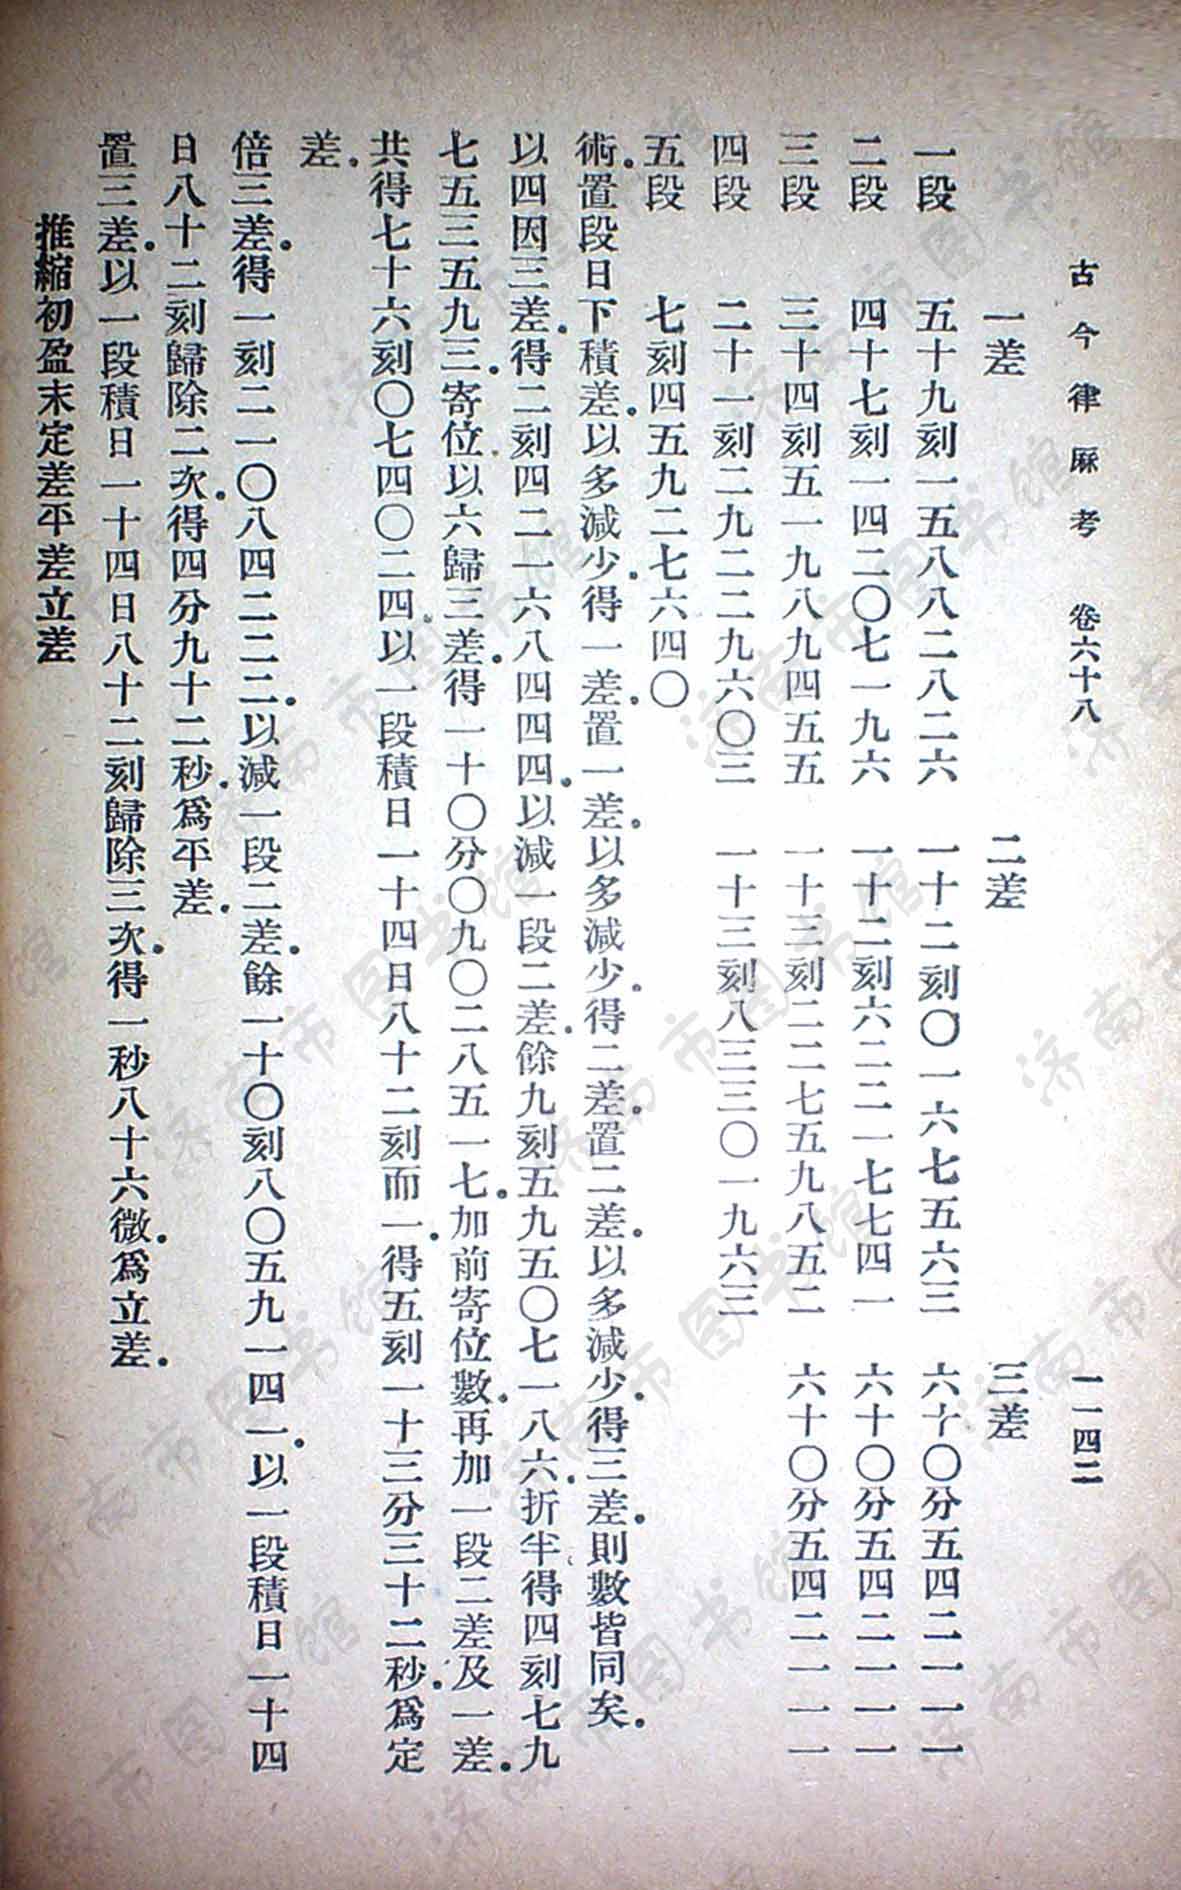 古今律厤考　卷六十八　一一四二
一差　二差　三差
一段　五十九刻一五八八二八二六　一十二刻〇一六七五六三　六十〇分五四二一一一
二段　四十七刻一四二〇七一九六　一十二刻六二二一七七四一　六十〇分五四二一一一
三段　三十四刻五一九八九四五五　一十三刻二二七五九八五二　六十〇分五四二一一一
四段　二十一刻二九二二九六〇三　一十三刻八三三〇一九六三
五段　七刻四五九二七六四〇
術。置段日下積差。以多減少。得一差。置一差。以多減少。得二差。置二差。以多減少。得三差。則數皆同矣。
以四因三差。得二刻四二一六八四四四。以減一段二差。餘九刻五九五〇七一八六。折半得四刻七九
七五三五九三。寄位。以六歸三差。得一十〇分〇九〇二八五一七。加前寄位數。再加一段二差及一差。
共得七十六刻〇七四〇二四。以一段積日一十四日八十二刻而一。得五刻一十三分三十二秒。爲定
差。
倍三差。得一刻二一〇八四二二二。以減一段二差。餘一十〇刻八〇五九一四一。以一段積日一十四
日八十二刻歸除二次。得四分九十二秒。爲平差。
置三差。以一段積日一十四日八十二刻歸除三次。得一秒八十六微。爲立差。
推縮初盈末定差平差立差